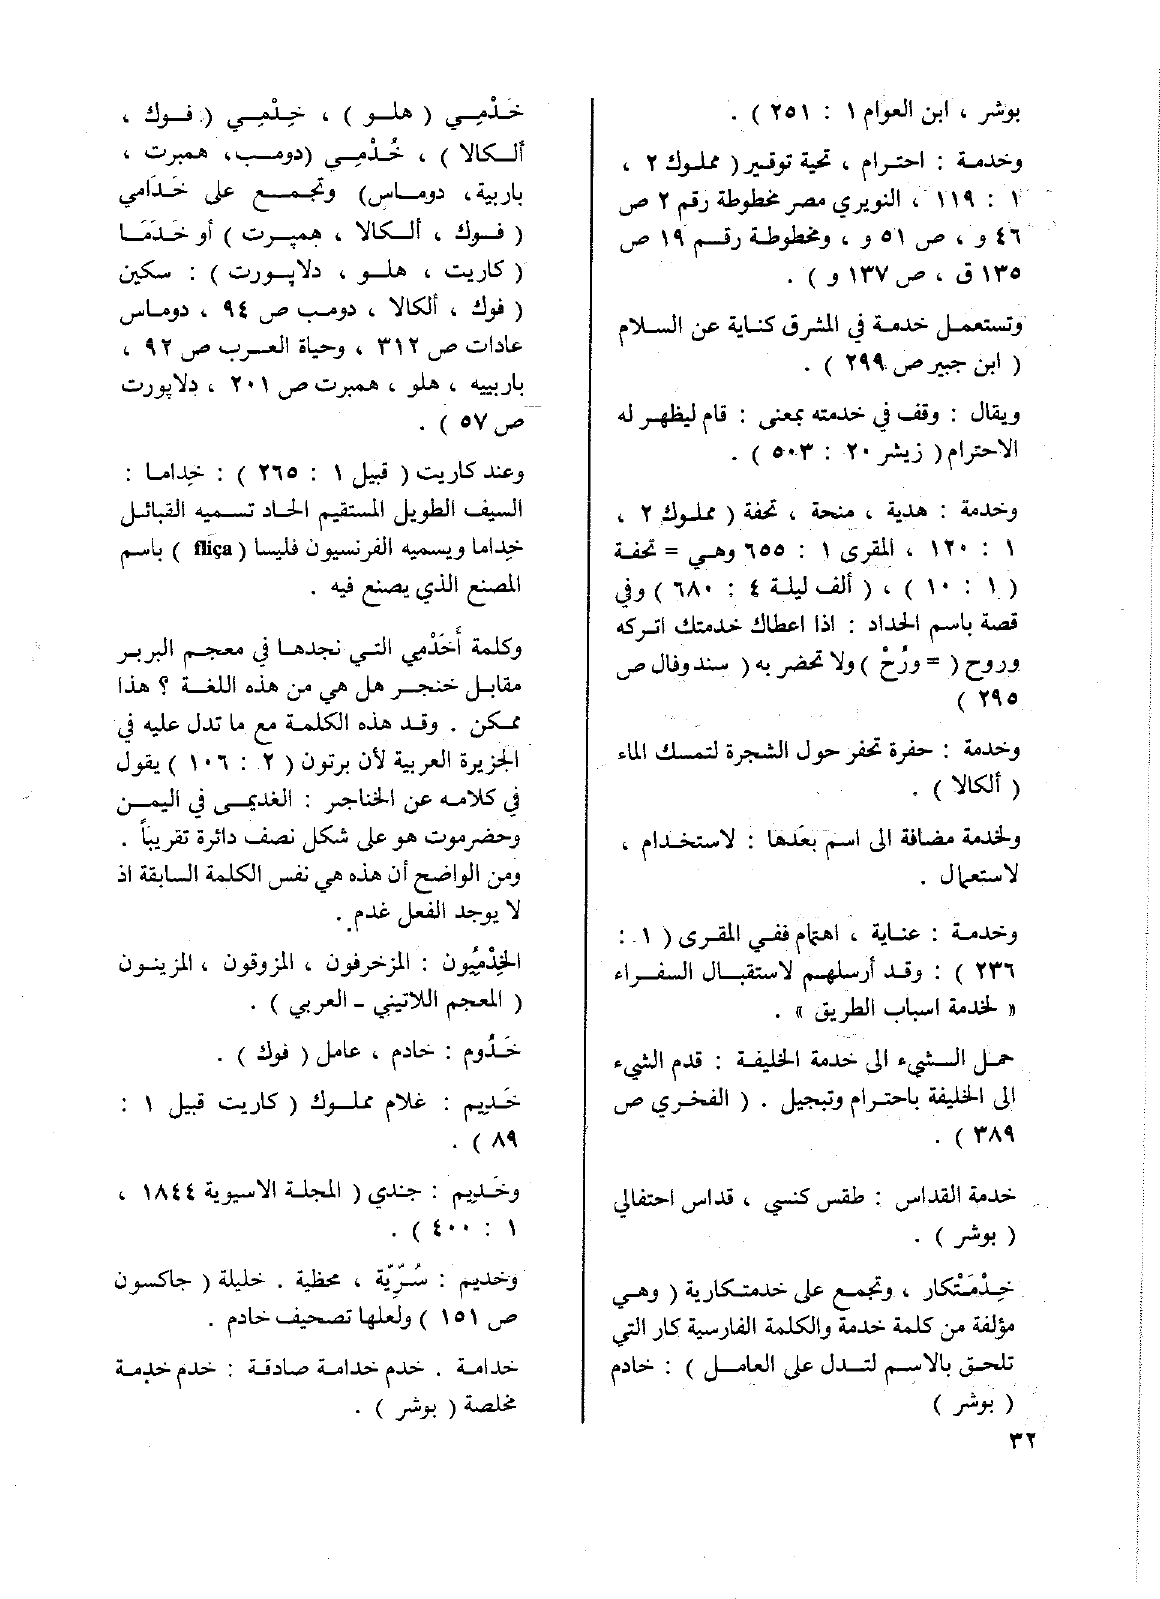 بوشر ، ابن العوام ١ : ٢٥١ ) .
وخدمة : احترام ، تحية توقير ( مملوك ٢ ،
١ : ١١٩ ، النويري مصر مخطوطة رقم ٢ ص
٤٦ و ، ص ٥١ و ، ومخطوطة رقم ١٩ ص
١٣٥ ق ، ص ١٣٧ و ) .
وتستعمل خدمة في المشرق كناية عن السلام
( ابن جبير ص ٢٩٩ ) .
ويقال : وقف في خدمته بمعنى : قام ليظهر له
الاحترام ( زيشر ٢٠ : ٥٠٣ ) .
وخدمة : هدية ، منحة ، تحفة ( مملوك ٢ ،
١ : ١٢٠ ، المقرى ١ : ٦٥٥ وهي = تحفة
( ١ : ١٠ ) ، ( ألف ليلة ٤ : ٦٨٠ ) وفي
قصة باسم الحداد : اذا اعطاك خدمتك اتركه
وروح ( = ورُحْ ) ولا تحضر به ( سند وفال ص
٢٩٥ )
وخدمة : حفرة تحفر حول الشجرة لتمسك الماء
( ألكالا ) .
ولخدمة مضافة الى اسم بعدها : لاستخدام ،
لاستعمال .
وخدمة : عناية ، اهتمام ففي المقرى ( ١ :
٢٣٦ ) : وقد أرسلهم لاستقبال السفراء
« لخدمة اسباب الطريق » .
حمل الشيء الى خدمة الخليفة : قدم الشيء
الى الخليفة باحترام وتبجيل . ( الفخري ص
٣٨٩ ) .
خدمة القداس : طقس كنسي ، قداس احتفالي
( بوشر ) .
خِدْمَتْكار ، وتجمع على خدمتكارية ( وهي
مؤلفة من كلمة خدمة والكلمة الفارسية كار التي
تلحق بالاسم لتدل على العامل ) : خادم
( بوشر )
٣٢
خَدْمِي ( هلو ) ، خِدْمِي ( فوك ،
ألكالا ) ، خُدْمِي (دومب، همبرت ،
باربية، دوماس) وتجمع على خَدَامي
( فوك ، ألكالا ، همبرت ) أو خَدَمَا
( كاريت ، هلو ، دلاپورت ) : سكين
( فوك ، ألكالا ، دومب ص ٩٤ ، دوماس
عادات ص ٣١٢ ، وحياة العرب ص ٩٢ ،
باربييه ، هلو ، همبرت ص ٢٠١ ، دلاپورت
ص ٥٧ ) .
وعند كاريت ( قبيل ١ : ٢٦٥ ) : خِداما :
السيف الطويل المستقيم الحاد تسميه القبائل
خِداما ويسميه الفرنسيون فليسا ( fliça ) باسم
المصنع الذي يصنع فيه .
وكلمة أَخَدْمي التي نجدها في معجم البربر
مقابل خنجر هل هي من هذه اللغة ؟ هذا
ممكن . وقد هذه الكلمة مع ما تدل عليه في
الجزيرة العربية لأن برتون ( ٢ : ١٠٦ ) يقول
في كلامه عن الخناجر : الغديمى في اليمن
وحضرموت هو على شكل نصف دائرة تقريباً .
ومن الواضح أن هذه هي نفس الكلمة السابقة اذ
لا يوجد الفعل غدم .
الخِدْمِيُون : المزخرفون ، المزوقون ، المزينون
( المعجم اللاتيني - العربي ) .
خَدُوم : خادم ، عامل ( فوك ) .
خَدِيم : غلام مملوك ( كاريت قبيل ١ :
٨٩ ) .
وخَدِيم : جندي ( المجلة الاسيوية ١٨٤٤ ،
١ : ٤٠٠ ) .
وخديم : سُرِّيَّة ، محظية . خليلة ( جاكسون
ص ١٥١ ) ولعلها تصحيف خادم .
خدامة . خدم خدامة صادقة : خدم خدمة
مخلصة ( بوشر ) .